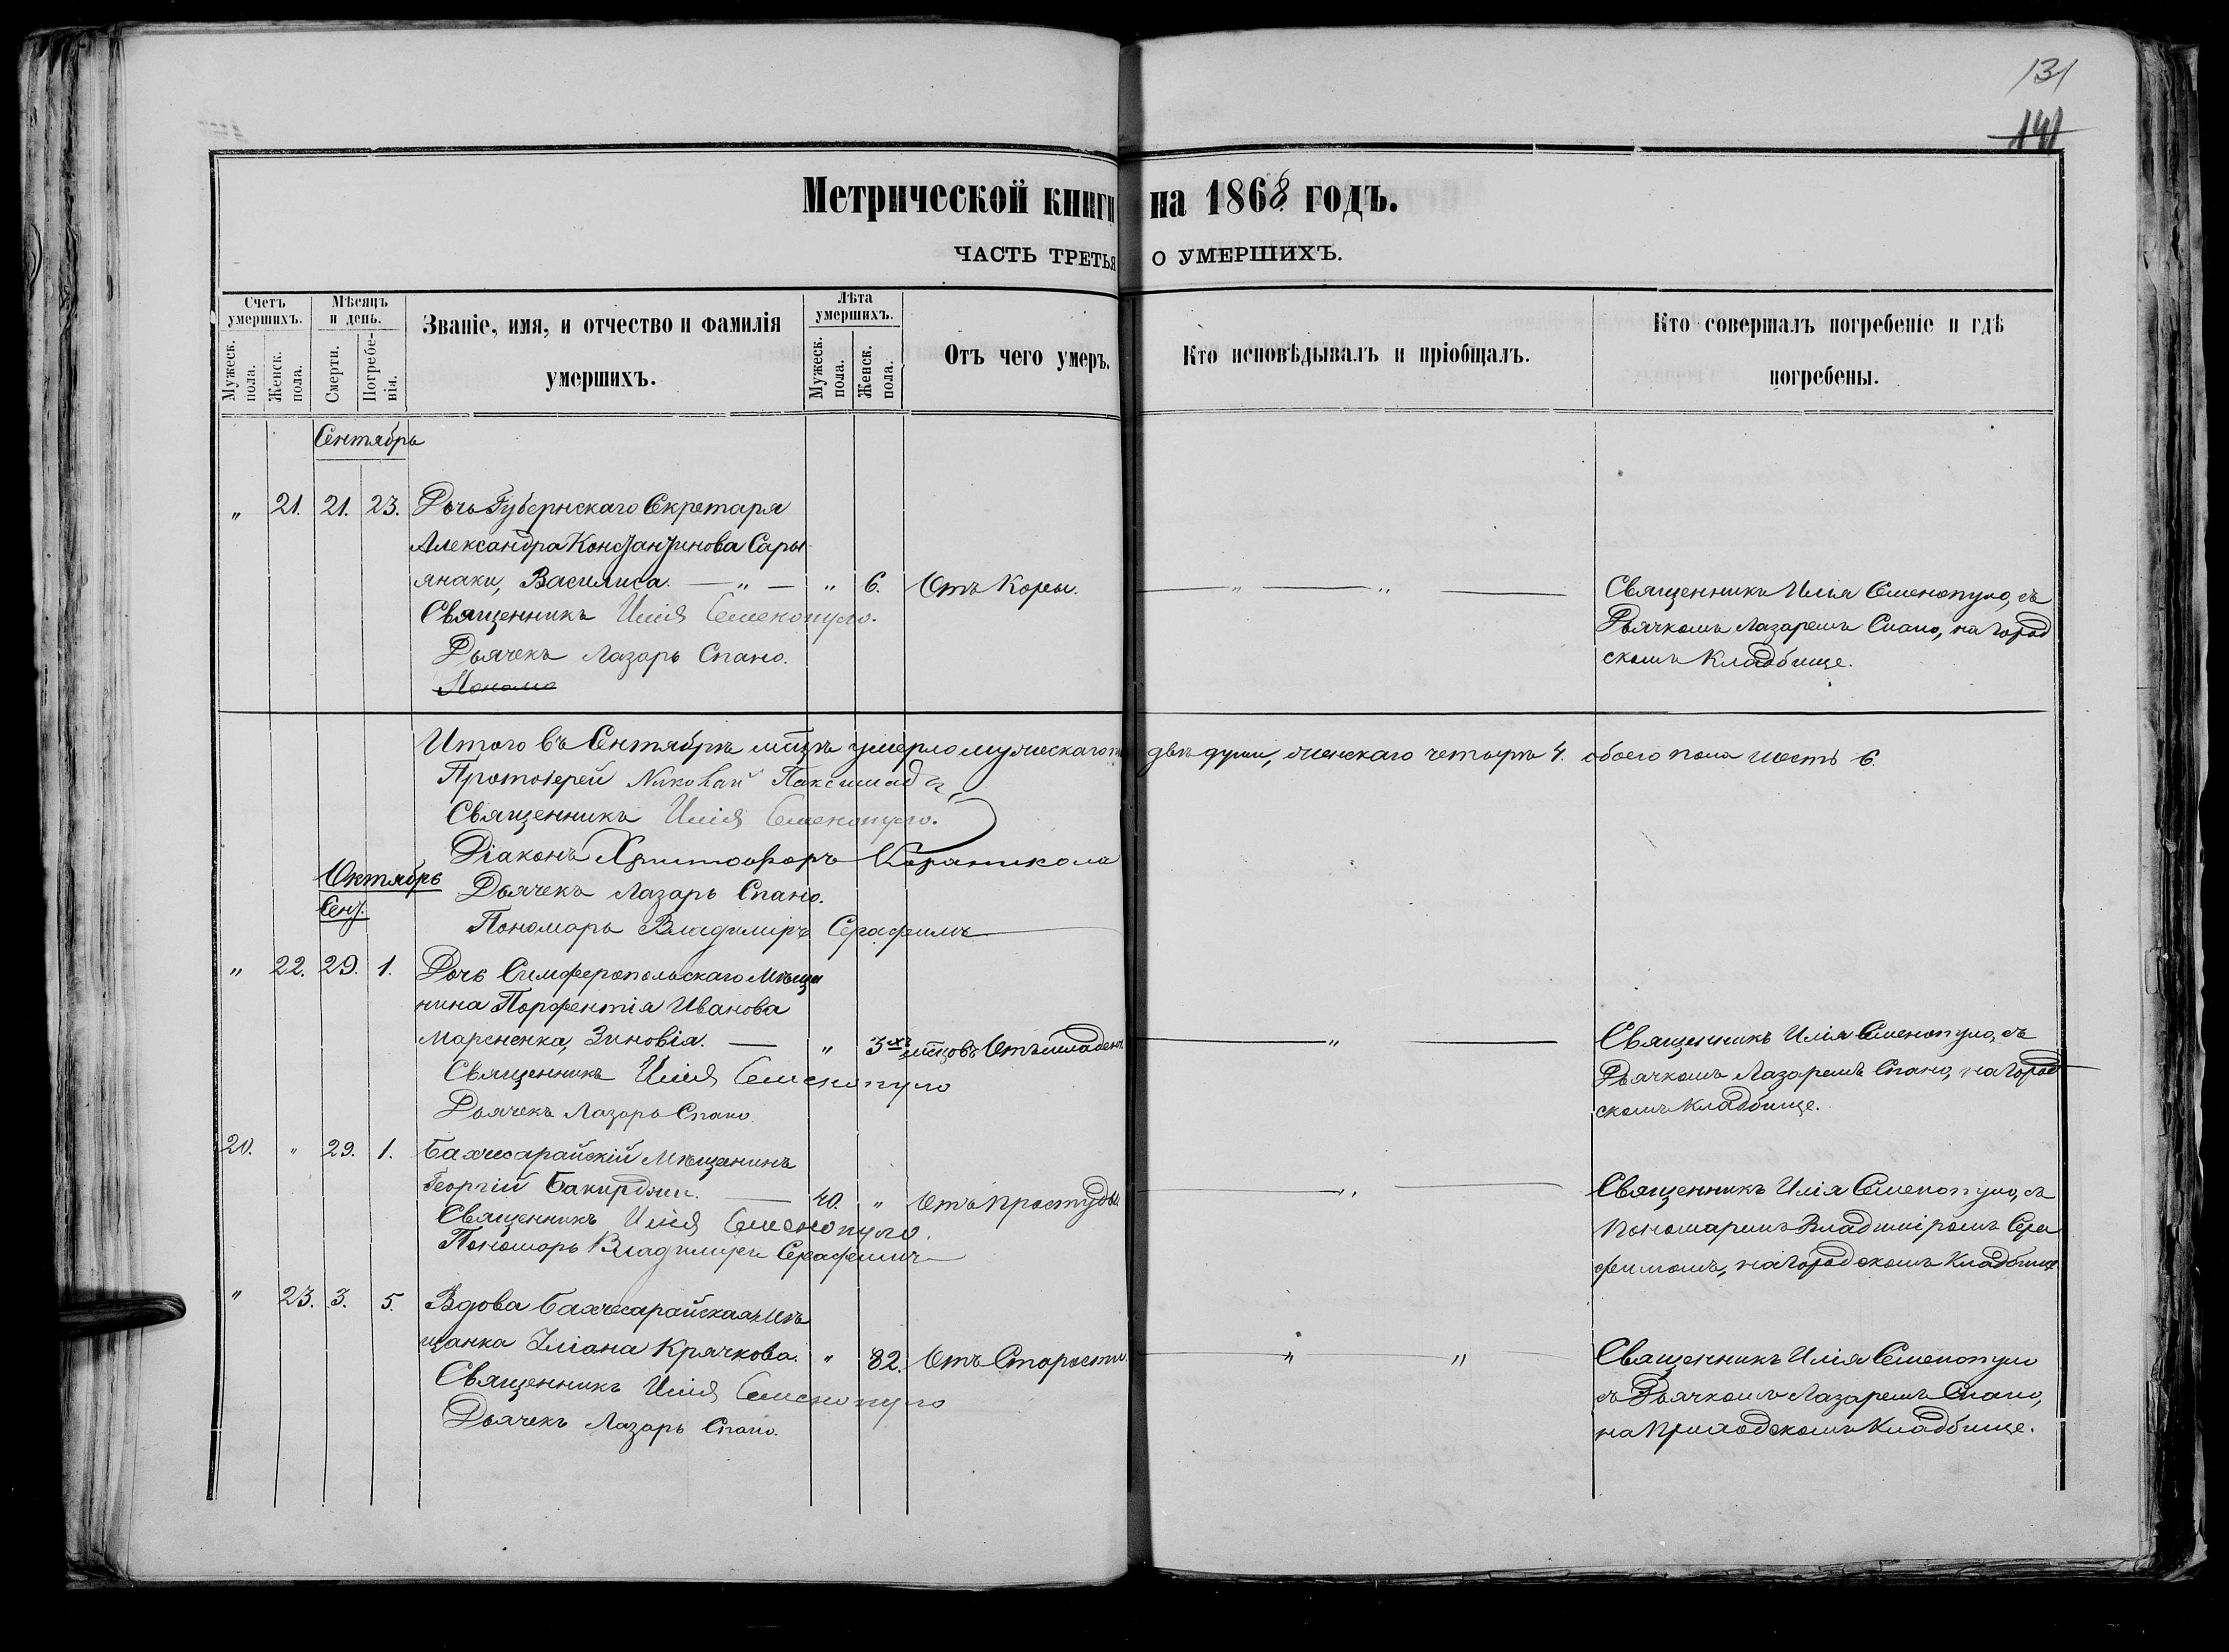 131
141
Метрической книги на 1868 годъ.
ЧАСТЬ ТРЕТЬЯ О УМЕРШИХЪ.
Счетъ умершихъ.
Мужеск. пола.
Женск. пола.
Мѣсяцъ и день.
Смерти.
Погребенія.
Званіе, имя, и отчество и фамилія
умершихъ.
Лѣта умершихъ.
Мужеск. пола.
Женск. пола.
Отъ чего умеръ.
Кто исповѣдывалъ и пріобщалъ.
Кто совершалъ погребеніе и гдѣ
погребены.
Сентябрь
„ 21. 21. 23. Дочь Губернскаго Секретаря
Александра Константинова Сары
янаки, Василиса. — „ — „ 6. Отъ Кореи. — „ — „ —
Священникъ Илія Семенопуло.
Дьячекъ Лазарь Спано.
Пономо
Священники Илія Семенопуло, съ
Дьячкомъ Лазаремъ Спано, на город
скомъ Кладбище.
Итого въ Сентябрѣ мѣцѣ умерло мужескаго двѣ души, женскаго четыре 4. обоего пола шесть 6.
Протоіерей Николай
Священникъ Илія Семенопуло.
Діаконъ Христофоръ Караникола
Дьячекъ Лазарь Спано.
Пономарь Владиміръ Серафимъ
Октябрь
Сент.
„ 22. 29. 1. Дочь Симферопольскаго Мѣща
нина Порфентія Иванова
Марененка, Зиновія. — „ 3хъ мѣцовъ Отъ младен. — „ —
Священникъ Илія Семенопуло
Дьячекъ Лазарь Спано
Священникъ Илія Семенопуло, съ
Дьячкомъ Лазаремъ Спано, на Город
скомъ Кладбище.
20. „ 29. 1. Бахчесарайскій Мѣщанинъ
Георгій Бакирджи. — 40. „ Отъ простуды — „ —
Священникъ Илія Семенопуло.
Пономарь Владиміръ Серафимъ
Священникъ Илія Семенопуло, съ
Пономаремъ Владиміромъ Сера
фимомъ, на Городскомъ Кладбище
„ 23. 3. 5. Вдова Бахчесарайская Мѣ
щанка Іліана Крячкова. „ 82. Отъ Старости. — „ „ —
Священникъ Илія Семенопуло
Дьячекъ Лазарь Спано.
Священникъ Илія Семенопуло
съ Дьячкомъ Лазаремъ Спано,
на Приходскомъ Кладбище.